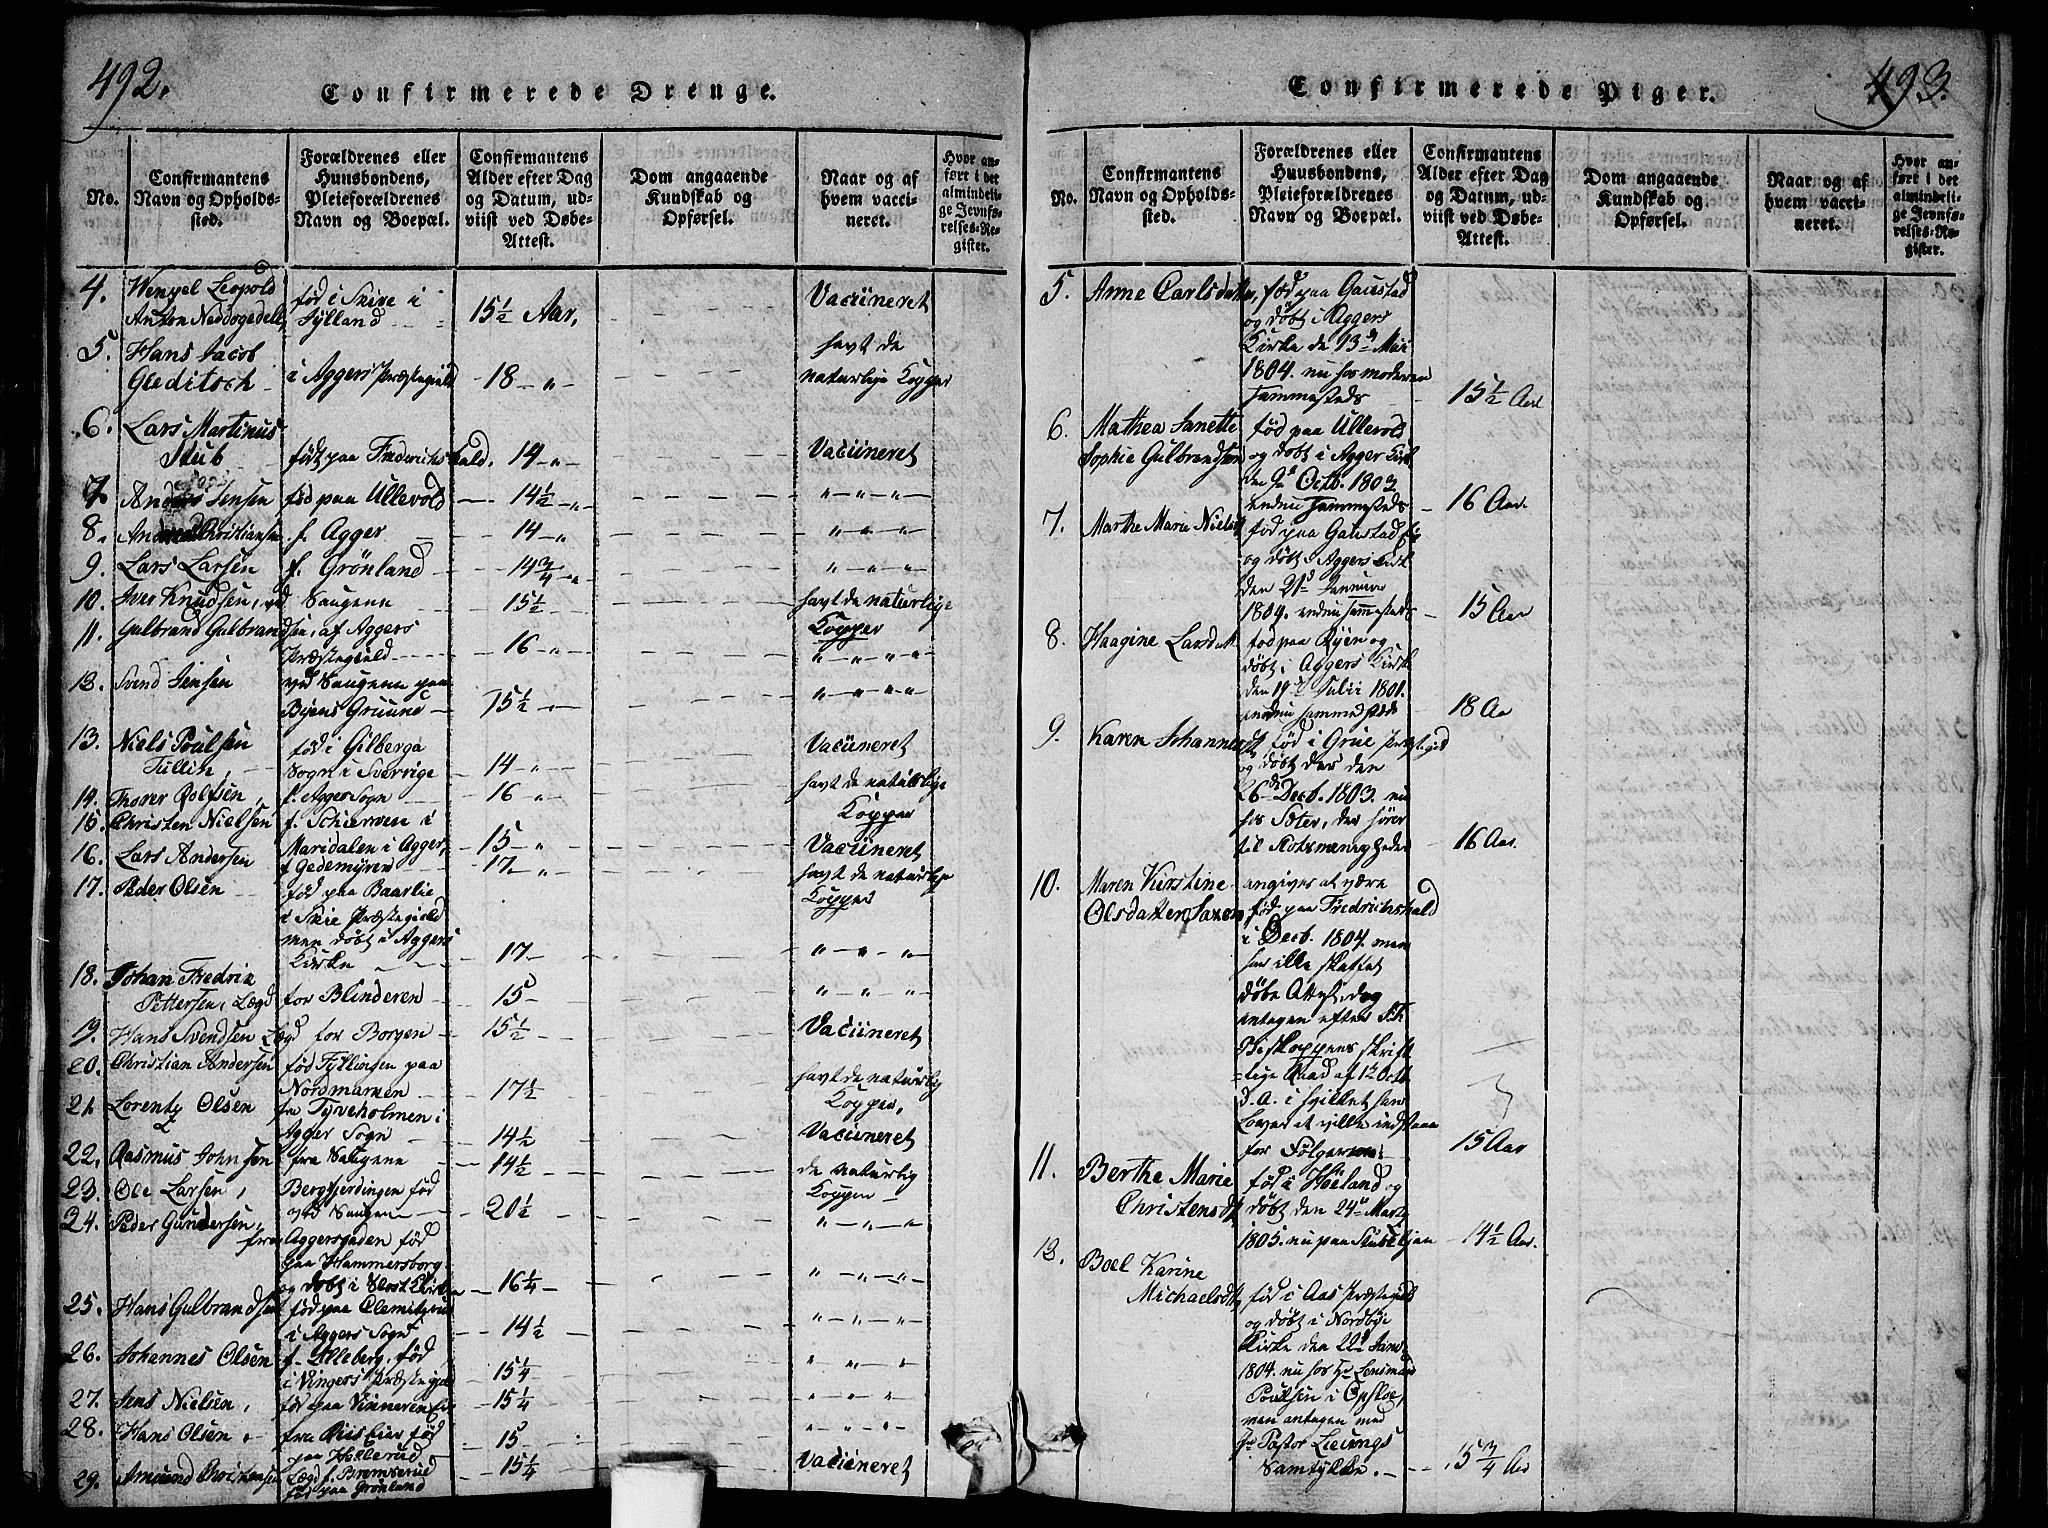 492.
Confirmerede Drenge.
No.
Confirmantens Navn og Opholdssted.
Forældrenes eller Huusbondens, Pleieforældrenes Navn og Boepæl.
Confirmantens Alder efter Dag og Datum, udviist ved Døbe-Attest.
Dom angaaende Kundskab og Opførsel.
Naar og af hvem vaccineret.
Hvor anført i det almindelige Jevnførelses-Register.
4. Wenzel Leopold
Anton født i Skive i Jylland 15½ Aar, Vaciineret
5. Hans Jacob
Gleditsch i Aggers Præstegield 18 " havt de naturlige Kopper
6. Lars Martinus
Steib født paa Frederichshald. 14 " Vaciineret
7. Anders Jensen fød paa Ullevold 14½ " " " "
8. Christiansen f. Agger 14 " " " "
9. Lars Larsen f. Grönland 14¾ " " " "
10. Iver Knudsen, ved Saugene 15½ havt de naturlige Kopper
11. Gulbrand Gulbrandsen, af Aggers
Præstegield 16 " " " " "
12. Svend Jensen ved Saugene paa
Byens Gruund 15½ " " " " "
13. Niels Poulsen fød i Gilberga
Tullin, Sogn i Sverrige 14 " Vaciineret
14. Thorer Rolfsen, f. Agger Sogn 16 " havt de naturlige Kopper
15. Christen Nielsen f. Schierven i
Maridalen i Agger, 15 " Vaciineret
16. Lars Andersen f. Gedemyren 17 " havt de naturlige Kopper
17. Peder Olsen fød paa Baarlie
i Skie Præstegield
men døbt i Aggers
Kirke 17 " " "
18. Johan Fredrik
Pettersen, Lægd for Blinderen 15 " " " "
19. Hans Svendsen Lægd for Borgen 15½ Vaciineret
20. Christian Andersen fød Fyllingen paa
Nordmarken 17½ havt de naturlig Kopper,
21. Lorentz Olsen fra Tyveholmen i
Agger Sogn 14½ Vaciineret
22. Rasmus Johnsen fra Saugene 14½ de naturlig Kopper
23. Ole Larsen, Bergfjerdingen fød
ved Saugene 20½
24. Peder Gundersen, " " " "
fra Aggersgaden fød
paa Hammersborg
og døbt i Slost Kirken 16¼ " " " "
25. Hans Gulbrandsen fød paa
i Aggers Sogn 14½ " " " "
26. Johannes Olsen f. Lilleberg, fød
i Vingers Præstegield 15¼ " " " "
27. Jens Nielsen, fød paa Vinneren 15¼ " " " "
28. Hans Olsen fra Riis Eier fød
paa Hollerud 15
29. Amund Christensen Lægd f. Bremserud
fød paa Grönland 15¼ Vaciineret
493.
Confirmerede Piger.
No.
Confirmantens Navn og Opholdssted.
Forældrenes eller Huusbondens, Pleieforældrenes Navn og Boepæl.
Confirmantens Alder efter Dag og Datum, udviist ved Døbe-Attest.
Dom angaaende Kundskab og Opførsel.
Naar og af hvem vaccineret.
Hvor anført i det almindelige Jevnførelses-Register.
5. Anne Carlsdatter, fød paa Gaustad
og døbt i Aggers
Kirke de 13de Mai
1804. nu hos moderen
sammesteds 15½ Aar
6. Mathea Janette fød paa Ullevold
Sophie Gulbrandsen og døbt i Agger Kirk
den 9de Octb. 1803
endnu sammesteds 16 Aar.
7. Marthe Marie Nielsdt fød paa Gaustad
og døbt i Aggers Kirk
den 21d Januar
1804. endnu sammesteds 15 Aar
8. Haagine Larsdt fød paa Ryen og
døbt i Aggers Kirk
den 19de Julii 1801.
endnu sammestede 18 Aa
9. Karen Johannesdt, fød i Grue Præstegield
og døbt der den
26de Decb. 1803. nu
hos Søster, der hører
til Slotsmenigheden 16 Aar.
10. Maren Kirstine angives at være
Olsdatter fød paa Fredrichshald
i Decb. 1804. men
har ikke skaffet
døbe Attest, dog
antagen efter
Biskoppens skrift
lige Raad af 1te Octb
d. A. i hvilket han
Lover at ville indstaae
for Følgerne. 15 Aar
11. Berthe Marie fød i Höiland og
Christensdtt døbt den 24de Marty
1805. nu paa Stubeljan 14½ Aar.
12. Boel Karine
Michaelsdtt fød i Aas Præstegield
og døbt i Nordbye
Kirke den 22de Janr
1804. nu hos Hr Lensmand
Poulsen i Opsloe,
men antagen med
Hr Pastor
Samtykke. 15¾ Aa